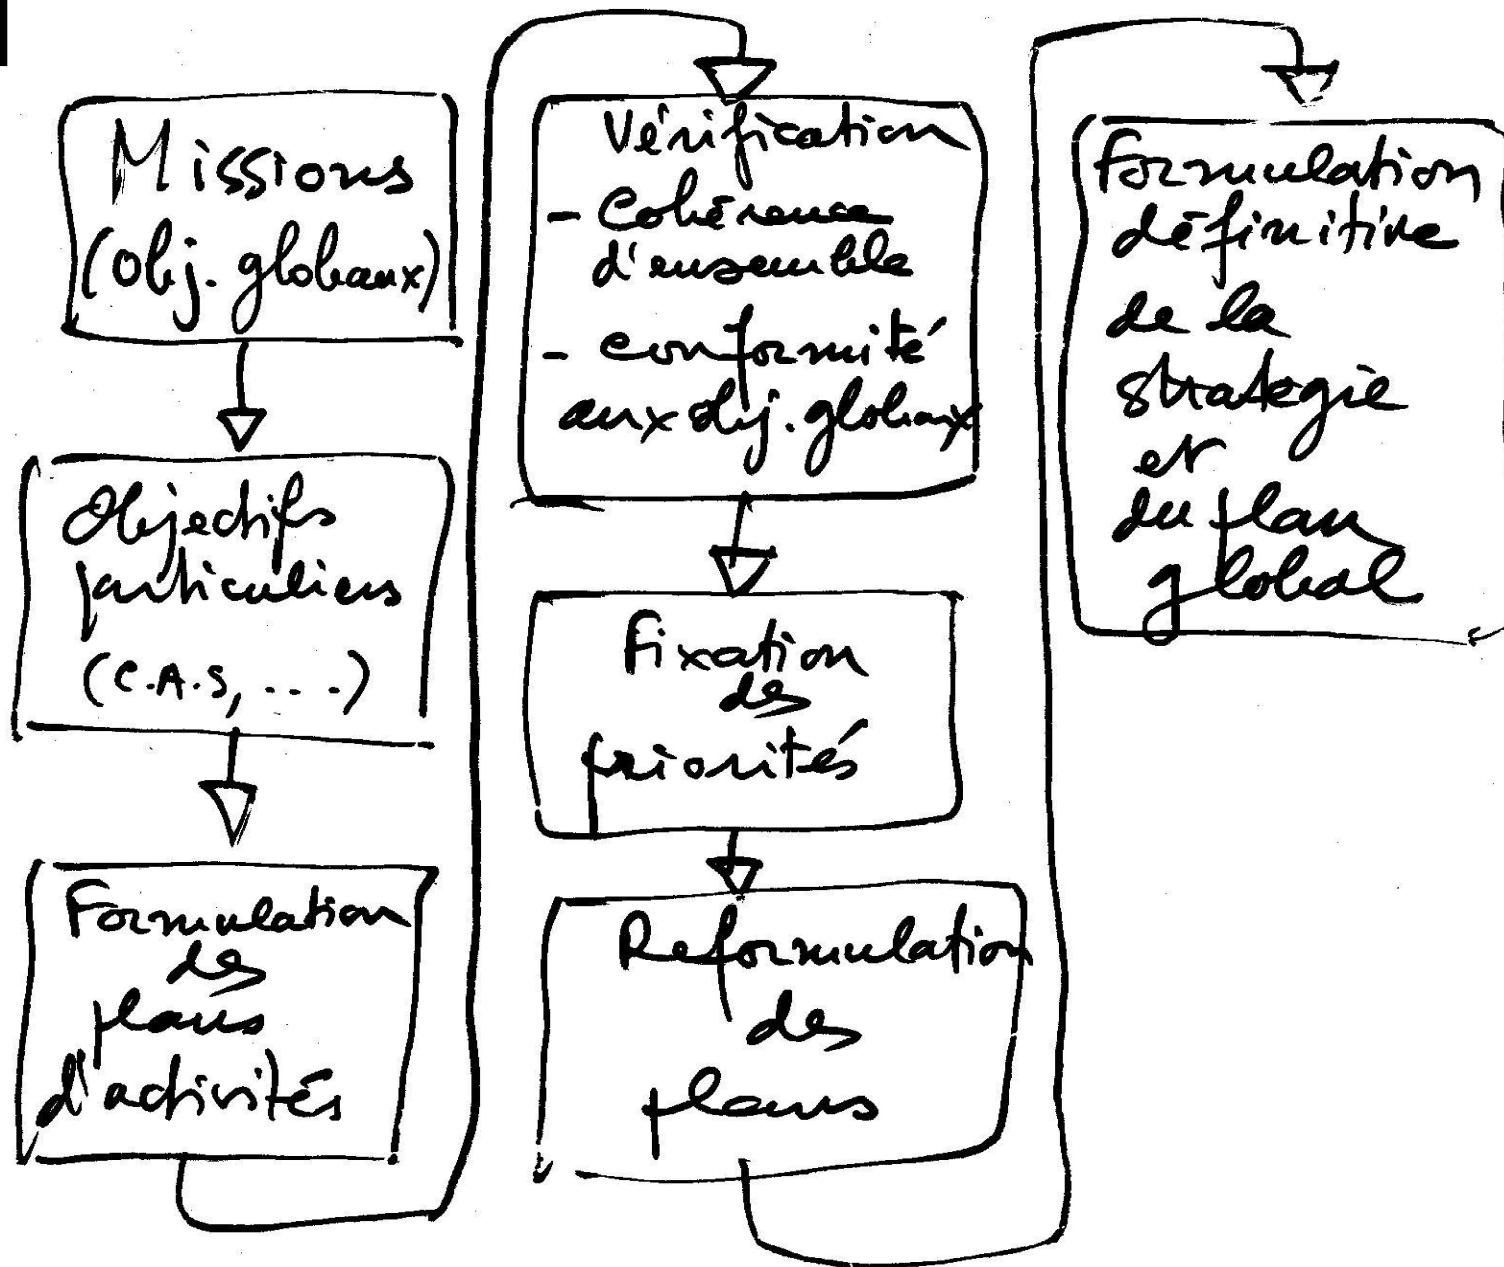 Missions
(obj. globaux)
Objectifs
particuliers
(C.A.S, ....)
Formulation
des
plans
d'activités
Vérification
- Cohérence
d'ensemble
- conformité
aux obj. globaux
Fixation
des
priorités
Reformulation
des
plans
Formulation
définitive
de la
stratégie
et
du plan
global